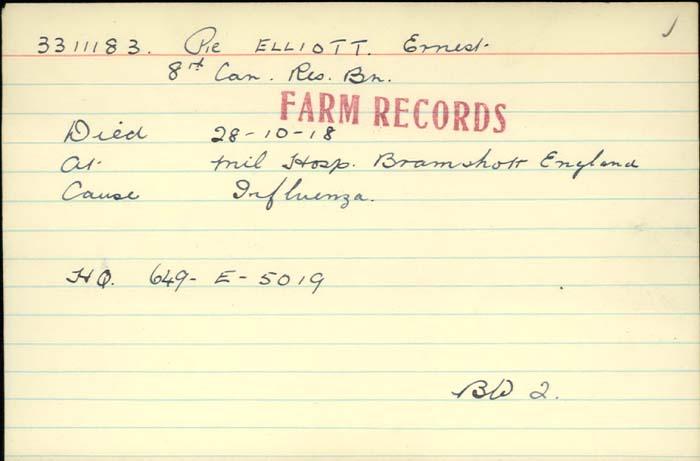 3311183. Pte ELLIOTT. Ernest
8th Can. Res. Bn.
FARM RECORDS
Died 28-10-18
At Mil Hosp. Bramshott England
Cause Influenza.
HQ. 649-E-5019
BW 2.